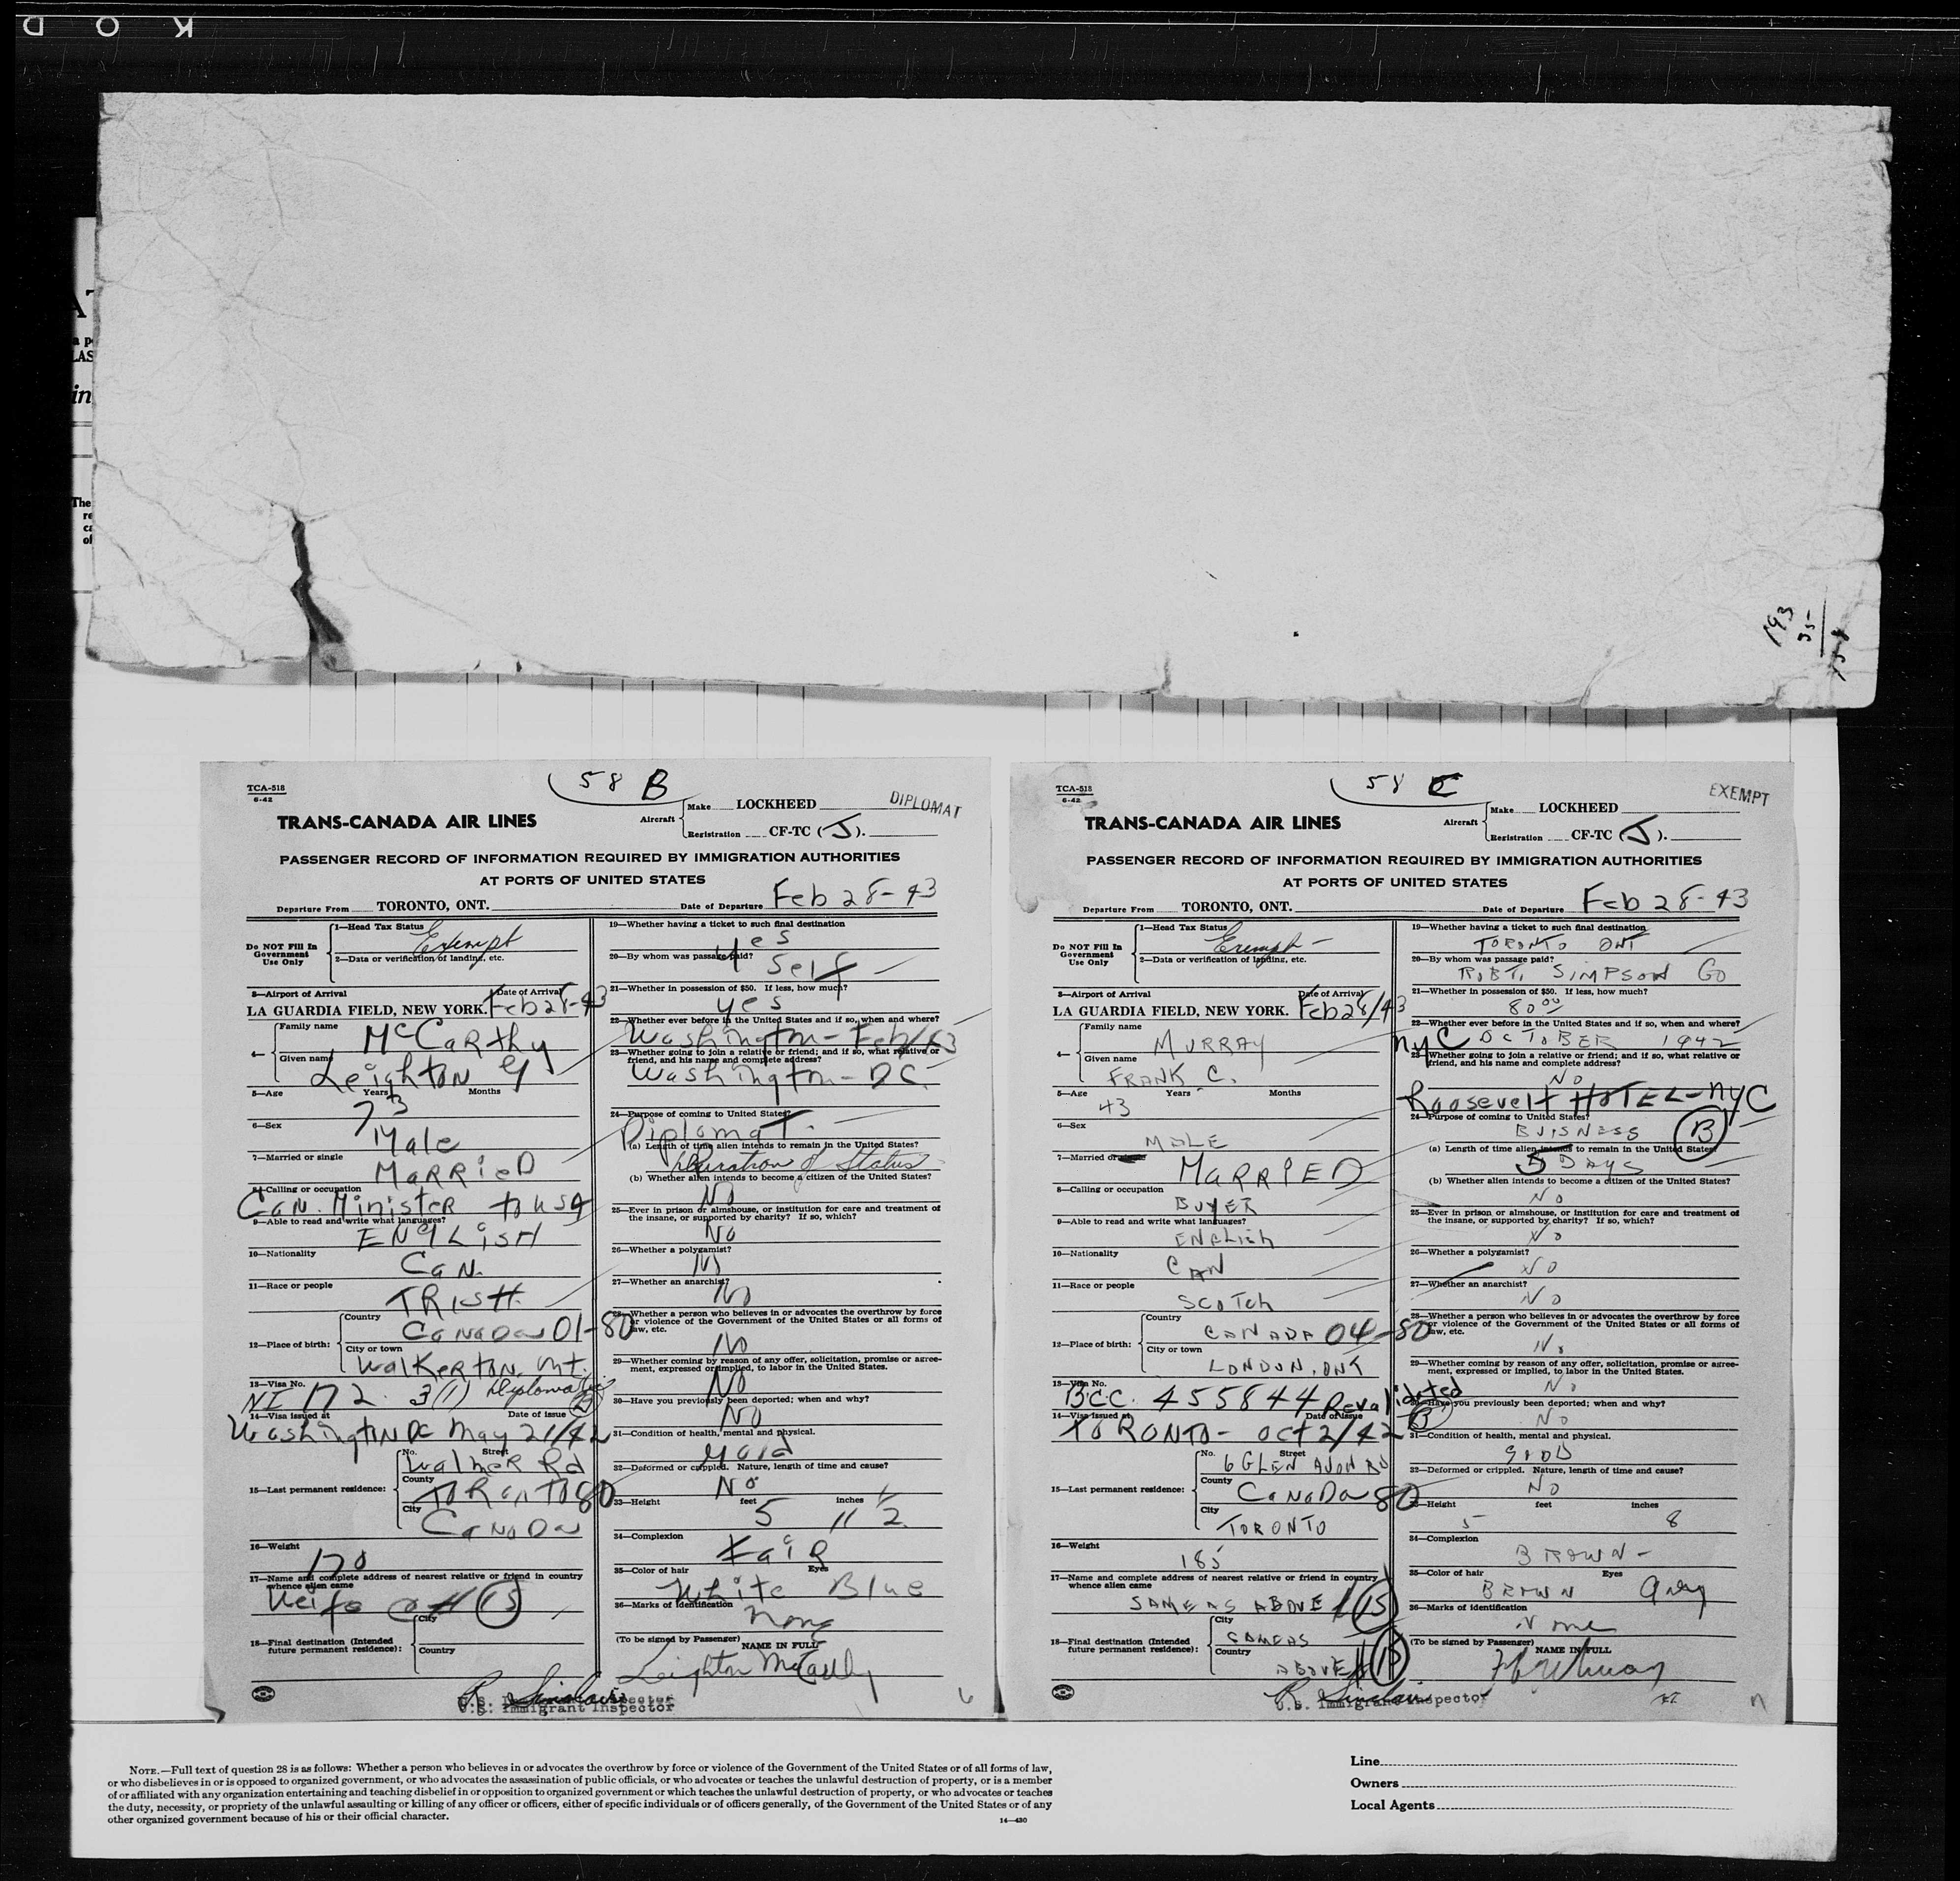 K O D
193
35-
158
58 B
DIPLOMAT
TCA-518
6-42
TRANS-CANADA AIR LINES
Aircraft
Make LOCKHEED
Registration CF-TC (J).
PASSENGER RECORD OF INFORMATION REQUIRED BY IMMIGRATION AUTHORITIES
AT PORTS OF UNITED STATES
Departure From TORONTO, ONT. Date of Departure Feb 28-43
Do NOT Fill In
Government
Use Only
1—Head Tax Status
Exempt
2—Data or verification of landing, etc.
3—Airport of Arrival Date of Arrival
LA GUARDIA FIELD, NEW YORK. Feb 28-43
4—
Family name
McCarthy
Given name
Leighton G
5—Age Years Months
73
6—Sex
Male
7—Married or single
MARRIED
8—Calling or occupation
Can. Minister to USA
9—Able to read and write what languages?
ENGLISH
10—Nationality
Can.
11—Race or people
IRISH
12—Place of birth:
Country
Canada 01-80
City or town
Walkerton, Ont.
13—Visa No.
NI 172 3(1) Diplomatic
14—Visa issued at Date of issue
Washington DC May 21/42
15—Last permanent residence:
No. Street
Walmer Rd
County
Toronto 80
City
Canada
16—Weight
170
17—Name and complete address of nearest relative or friend in country
whence alien came
Wife 15
18—Final destination (Intended
future permanent residence):
City
Country
19—Whether having a ticket to such final destination
Yes
20—By whom was passage paid?
Self
21—Whether in possession of $50. If less, how much?
yes
22—Whether ever before in the United States and if so, when and where?
Washington - Feb/43
23—Whether going to join a relative or friend; and if so, what relative or
friend, and his name and complete address?
Washington - DC.
24—Purpose of coming to United States?
Diplomat.
(a) Length of time alien intends to remain in the United States?
Duration of Status
(b) Whether alien intends to become a citizen of the United States?
No
25—Ever in prison or almshouse, or institution for care and treatment of
the insane, or supported by charity? If so, which?
No
26—Whether a polygamist?
No
27—Whether an anarchist?
No
28—Whether a person who believes in or advocates the overthrow by force
or violence of the Government of the United States or all forms of
law, etc.
No
29—Whether coming by reason of any offer, solicitation, promise or agree-
ment, expressed or implied, to labor in the United States.
No
30—Have you previously been deported; when and why?
No
31—Condition of health, mental and physical.
Good
32—Deformed or crippled. Nature, length of time and cause?
No
33—Height feet inches
5 11 1/2
34—Complexion
Fair
35—Color of hair Eyes
White Blue
36—Marks of identification
None
(To be signed by Passenger) NAME IN FULL
Leighton McCarthy
R Sinclair
U.S. Immigrant Inspector
58 C
EXEMPT
TCA-518
6-42
TRANS-CANADA AIR LINES
Aircraft
Make LOCKHEED
Registration CF-TC (J).
PASSENGER RECORD OF INFORMATION REQUIRED BY IMMIGRATION AUTHORITIES
AT PORTS OF UNITED STATES
Departure From TORONTO, ONT. Date of Departure Feb 28-43
Do NOT Fill In
Government
Use Only
1—Head Tax Status
Exempt -
2—Data or verification of landing, etc.
3—Airport of Arrival Date of Arrival
LA GUARDIA FIELD, NEW YORK. Feb 28/43
4—
Family name
MURRAY
Given name
FRANK C.
5—Age Years Months
43
6—Sex
MALE
7—Married or single
MARRIED
8—Calling or occupation
BUYER
9—Able to read and write what languages?
ENGLISH
10—Nationality
CAN
11—Race or people
SCOTCH
12—Place of birth:
Country
CANADA 04-80
City or town
LONDON, ONT
13—Visa No.
B.C.C. 455844 Revalidated
14—Visa issued at Date of issue
TORONTO - Oct 2/42 B
15—Last permanent residence:
No. Street
6 GLEN AVON RD
County
CANADA 80
City
TORONTO
16—Weight
185
17—Name and complete address of nearest relative or friend in country
whence alien came
SAME AS ABOVE 15
18—Final destination (Intended
future permanent residence):
City
SAME AS
Country
ABOVE
19—Whether having a ticket to such final destination
TORONTO ONT
20—By whom was passage paid?
ROBT. SIMPSON CO
21—Whether in possession of $50. If less, how much?
80 00
22—Whether ever before in the United States and if so, when and where?
NYC OCTOBER 1942
23—Whether going to join a relative or friend; and if so, what relative or
friend, and his name and complete address?
NO
Roosevelt HOTEL-NYC
24—Purpose of coming to United States?
BUISNESS B
(a) Length of time alien intends to remain in the United States?
5 DAYS
(b) Whether alien intends to become a citizen of the United States?
NO
25—Ever in prison or almshouse, or institution for care and treatment of
the insane, or supported by charity? If so, which?
NO
26—Whether a polygamist?
NO
27—Whether an anarchist?
NO
28—Whether a person who believes in or advocates the overthrow by force
or violence of the Government of the United States or all forms of
law, etc.
No
29—Whether coming by reason of any offer, solicitation, promise or agree-
ment, expressed or implied, to labor in the United States.
No
30—Have you previously been deported; when and why?
NO
31—Condition of health, mental and physical.
GOOD
32—Deformed or crippled. Nature, length of time and cause?
NO
33—Height feet inches
5 8
34—Complexion
BROWN -
35—Color of hair Eyes
BROWN Grey
36—Marks of identification
None
(To be signed by Passenger) NAME IN FULL
R Sinclair
U.S. Immigrant Inspector
NOTE.—Full text of question 28 is as follows: Whether a person who believes in or advocates the overthrow by force or violence of the Government of the United States or of all forms of law,
or who disbelieves in or is opposed to organized government, or who advocates the assassination of public officials, or who advocates or teaches the unlawful destruction of property, or is a member
of or affiliated with any organization entertaining and teaching disbelief in or opposition to organized government or which teaches the unlawful destruction of property, or who advocates or teaches
the duty, necessity, or propriety of the unlawful assaulting or killing of any officer or officers, either of specific individuals or of officers generally, of the Government of the United States or of any
other organized government because of his or their official character.
14—430
Line
Owners
Local Agents